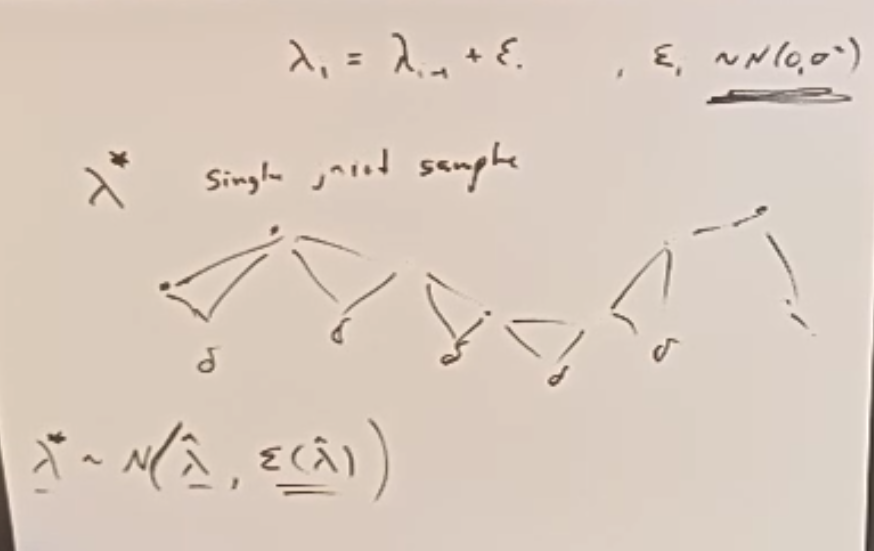 λᵢ = λᵢ₋₁ + εᵢ , εᵢ ~ N(0, σ²)
λ* single joint sample
δ δ δ δ δ
λ* ~ N(λ̂, Σ(λ̂))